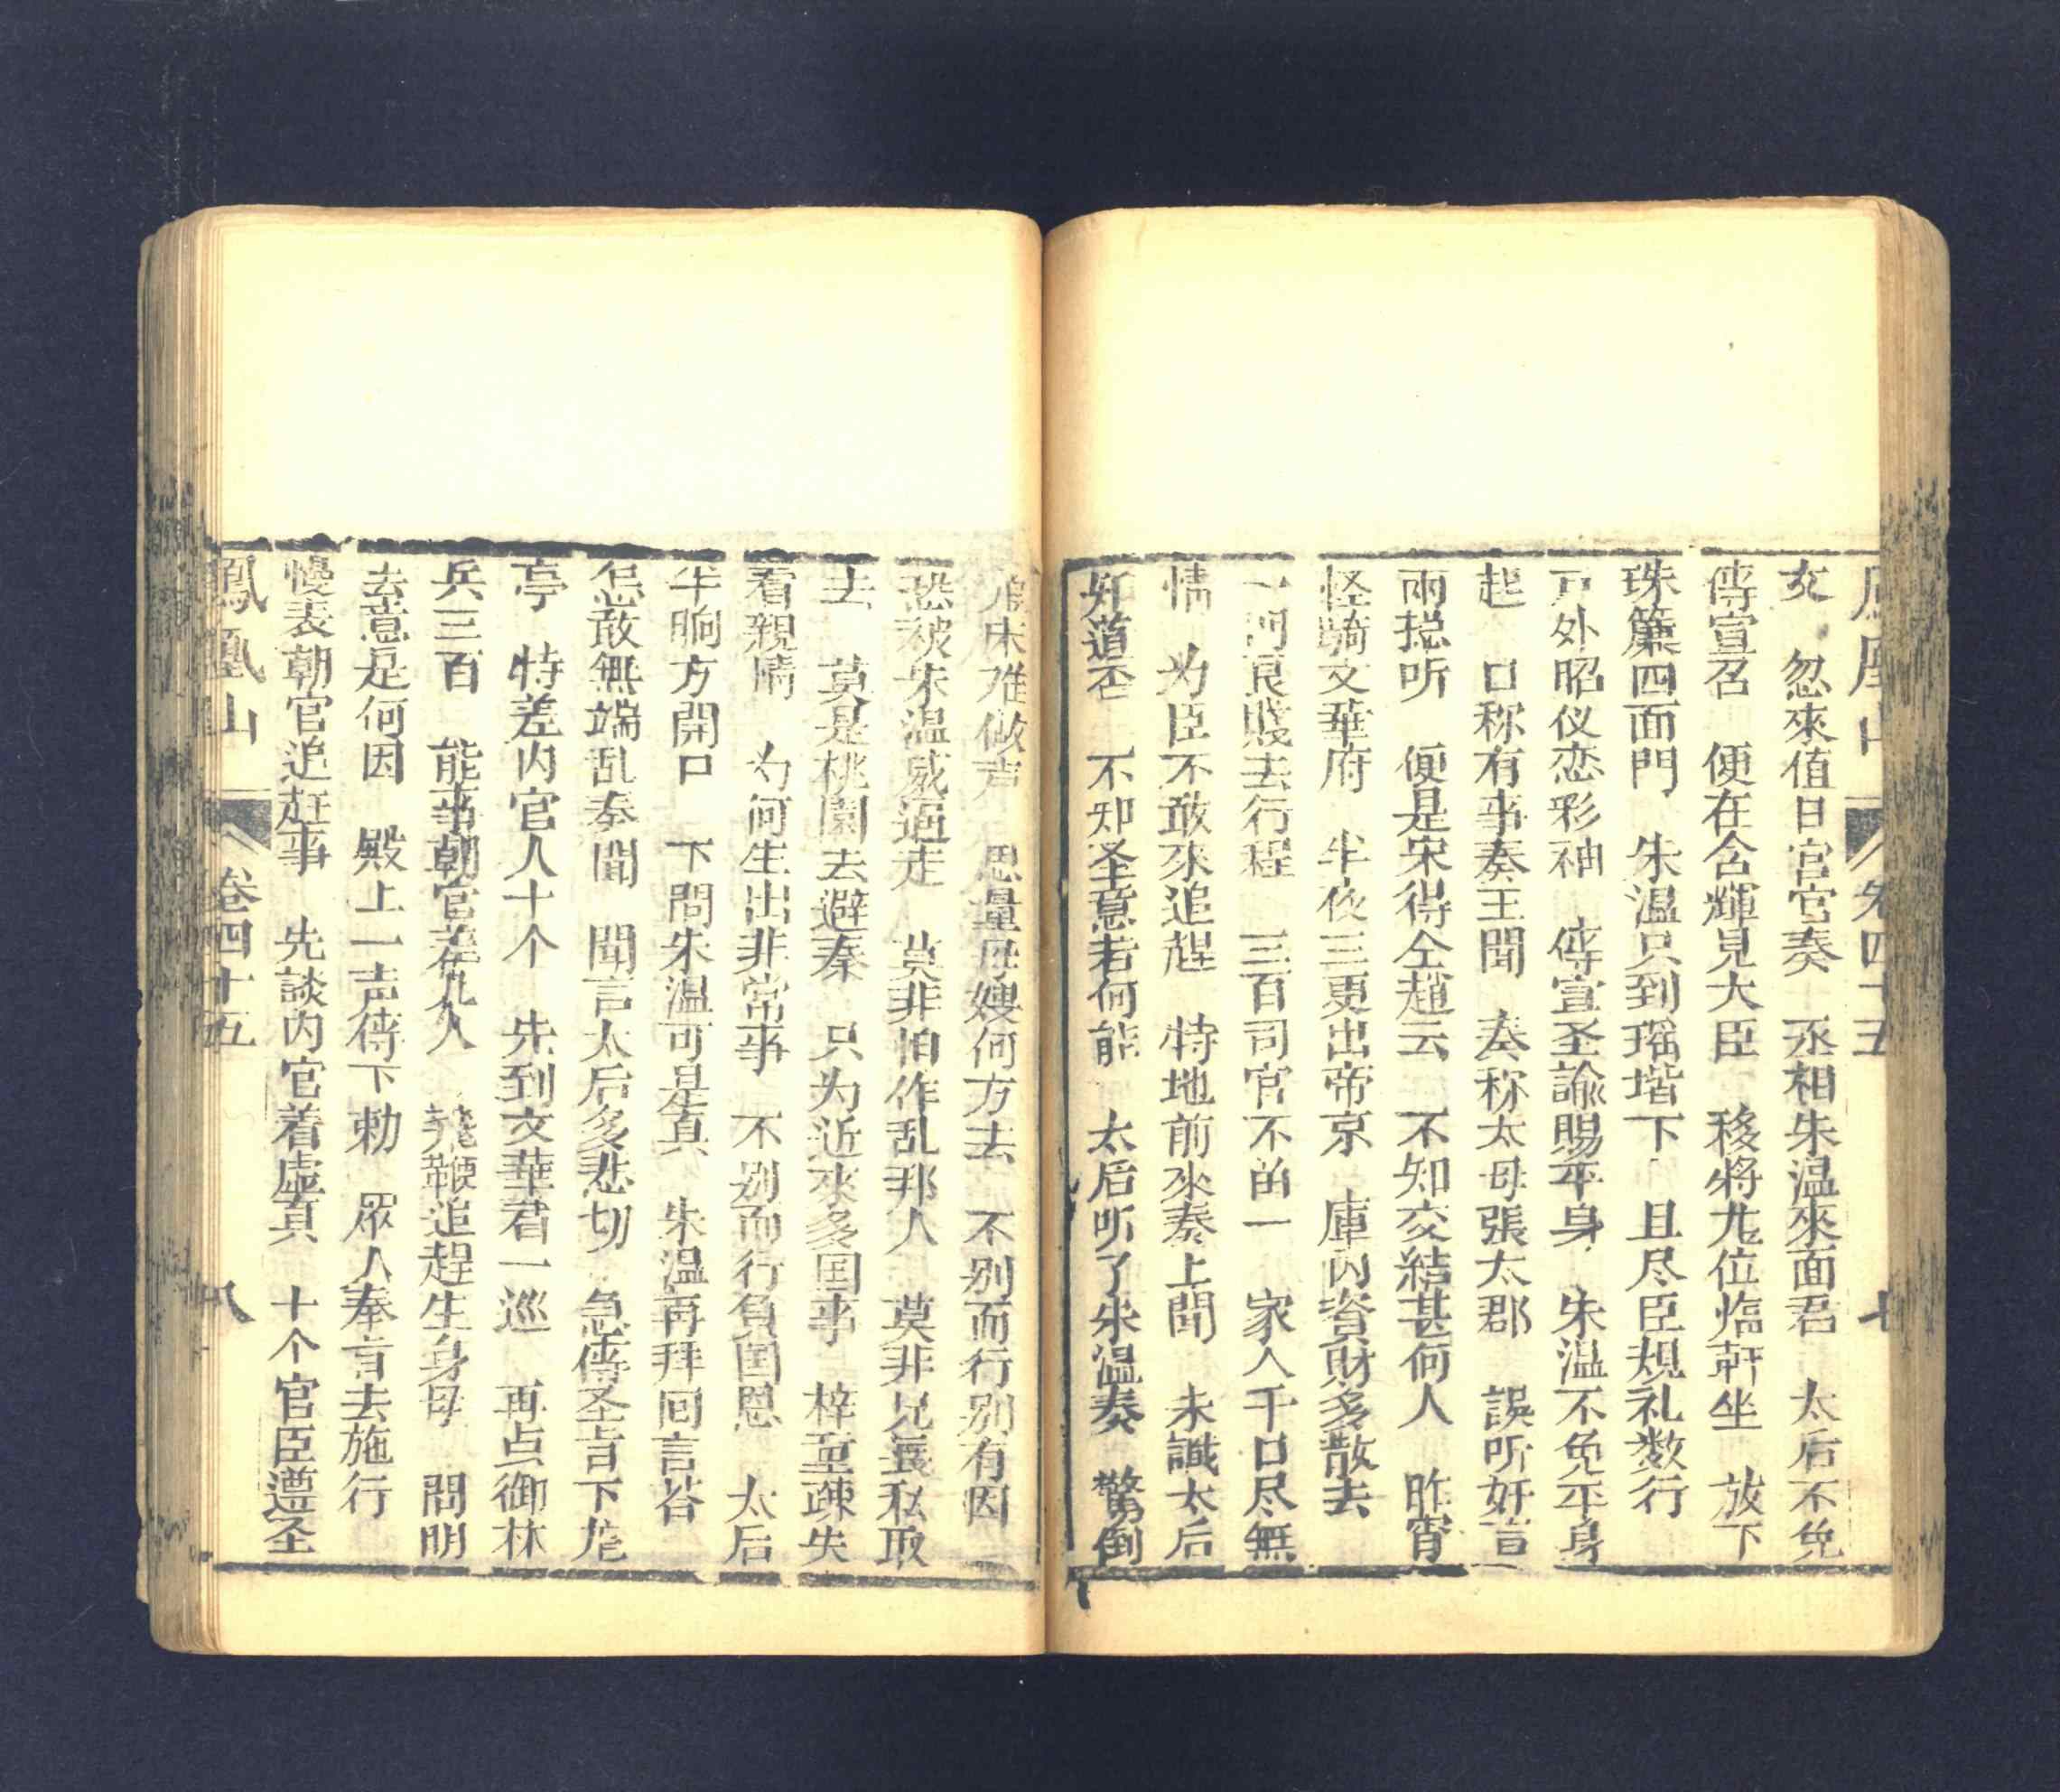 鳳凰山 卷四十五 七
交 忽來值日宮官奏 丞相朱温來面君 太后不免
傳宣召 便在含輝見大臣 移將九位臨軒坐 放下
珠簾四面門 朱温只到瑶堦下 且尽臣規礼数行
戸外昭仪恋彩袖 傳宣圣諭賜平身 朱温不免平身
起 口称有事奏王聞 奏称太母張太郡 誤听奸言
兩挩听 便是宋得仝趙云 不知交結甚何人 昨宵
怪騎文華府 半夜三更出帝京 庫内資財多散去
一 賤去行程 三百司官不畄一 家人千口尽無
情 为臣不敢來追趕 特地前來奏上聞 未識太后
知道否 不知圣意若何能 太后听了朱温奏 驚倒
床难做声 思量母嫂何方去 不别而行别有因
恐被朱温威逼走 莫非怕作乱邦人 莫非兄長私取
去 莫是桃園去避秦 只为近來多囯事 梓童疎失
看親情 为何生出非常事 不别而行負囯恩 太后
半晌方開口 下問朱温可是真 朱温再拜回言荅
怎敢無端乱奏聞 聞言太后多悲切 急傳圣旨下龙
亭 特差内官人十个 先到文華君一巡 再点御林
兵三百 能事朝官差九人 飛鞭追趕生身母 問明
去意是何因 殿上一声傳下勅 眾人奉旨去施行
慢表朝官追赶事 先談内官着虚真 十个官臣遵圣
鳳凰山 卷四十五 八